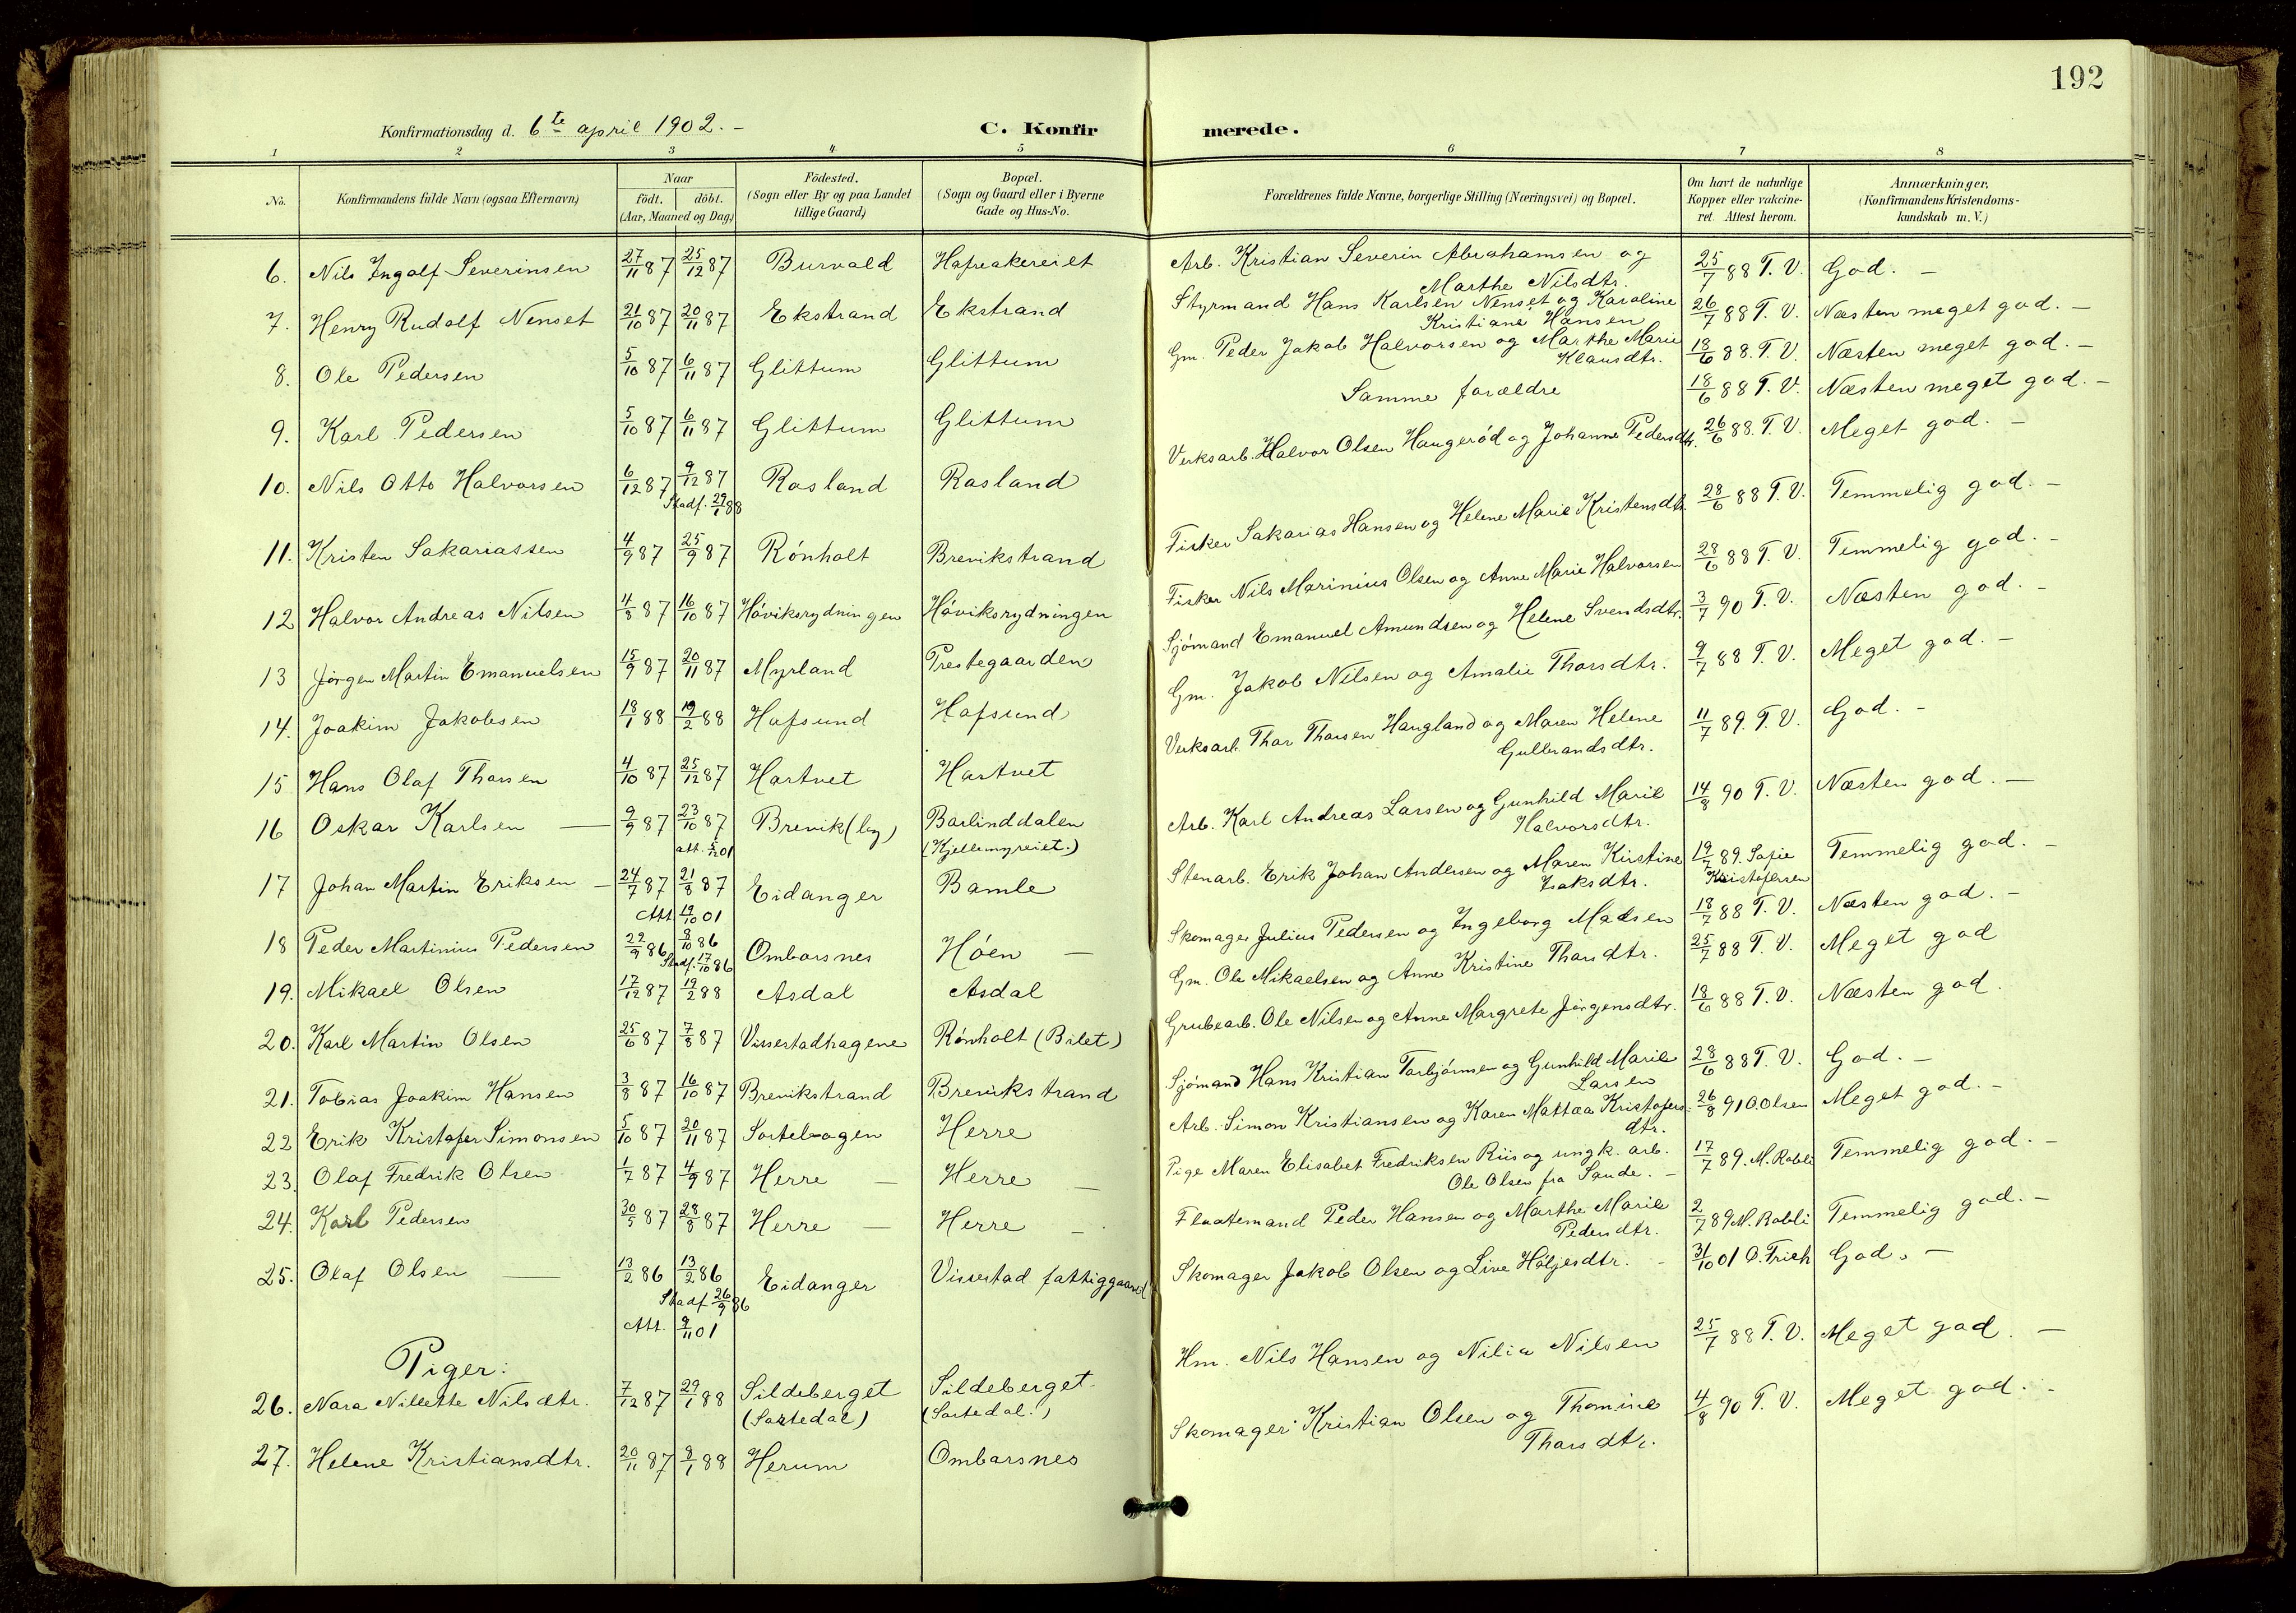 192
Konfirmationsdag d. 6te april 1902. –
C. Konfirmerede.
1 2 3 4 5 6 7 8
No. Konfirmandens fulde Navn (ogsaa Efternavn) Naar födt. döbt. (Aar, Maaned og Dag) Födested. (Sogn eller By og paa Landet tillige Gaard) Bopæl. (Sogn og Gaard eller i Byerne Gade og Hus-No. Forældrenes fulde Navne, borgerlige Stilling (Næringsvei) og Bopæl. Om havt de naturlige Kopper eller vakcineret. Attest herom. Anmærkninger. (Konfirmandens Kristendomskundskab m. V.)
6. Nils Ingolf Severinsen 27/11 87 25/12 87 Burvald Hafreakereiet Arb. Kristian Severin Abrahamsen og Marthe Nilsdtr. 25/7 88 T. V. God. –
7. Henry Rudolf Nenset 21/10 87 20/11 87 Ekstrand Ekstrand Styrmand Hans Karlsen Nenset og Karoline Kristiane Hansen 26/7 88 T. V. Næsten meget god. –
8. Ole Pedersen 5/10 87 6/11 87 Glittum Glittum Gm. Peder Jakob Halvorsen og Marthe Marie Klausdtr. 18/6 88. T. V. Næsten meget god. –
9. Karl Pedersen 5/10 87 6/11 87 Glittum Glittum Samme forældre 18/6 88 T. V. Næsten meget god. –
10. Nils Otto Halvorsen 6/12 87 9/12 87 Stadf. 29/1 88 Rosland Rosland Verksarb. Halvor Olsen Haugeród og Johanne Pedersdtr. 26/6 88. T. V. Meget god. –
11. Kristen Sakariassen 4/9 87 25/9 87 Rónholt Brevikstrand Fisker Sakarias Hansen og Helene Marie Kristensdtr. 28/6 88 T. V. Temmelig god. –
12 Halvor Andreas Nilsen 4/8 87 16/10 87 Hóviksrydningen Hóviksrydningen Fisker Nils Marinius Olsen og Anne Marie Halvorsen 28/6 88 T. V. Temmelig god. –
13 Jörgen Martin Emanuelsen 15/9 87 20/11 87 Myrland Prestegaarden Sjómand Emanuel Amundsen og Helene Svendsdtr. 3/7 90 T. V. Næsten god. –
14. Joakim Jakobsen 18/1 88 19/2 88 Hafsund Hafsund Gm. Jakob Nilsen og Amalie Thorsdtr. 9/7 88 T. V. Meget god. –
15 Hans Olaf Thorsen 4/10 87 25/12 87 Hartvet Hartvet Verksarb. Thor Thorsen Haugland og Maren Helene Gulbrandsdtr. 11/7 89. T. V. God. –
16 Oskar Karlsen — 9/9 87 23/10 87 att. 5/12 01 Brevik (by) Barlinddalen (Kjellemyreiet.) Arb. Karl Andreas Larsen og Gunhild Marie Halvorsdtr. 14/8 90 T. V. Næsten god. –
17 Johan Martin Eriksen – 24/7 87 21/8 87 Att. 19/10 01 Eidanger Bamle Stenarb. Erik Johan Andersen og Maren Kirstine Isaksdtr. 19/7 89. Sofie Kristofersen Temmelig god. –
18 Peder Martinius Pedersen 22/9 86 8/10 86 Stadf. 17/10 86 Ombarsnes Hóen – Skomager Julius Pedersen og Ingeborg Madsen 18/7 88 T. V. Næsten god. –
19. Mikael Olsen 17/12 87 19/2 88 Asdal Asdal Gm. Ole Mikaelsen og Anne Kristine Thorsdtr. 25/7 88 T. V. Meget god
20. Karl Martin Olsen 25/6 87 7/8 87 Vissestadhagene Rónholt (Bilet) Grubearb. Ole Nilsen og Anne Margrete Jörgensdtr. 18/6 88 T. V. Næsten god.
21. Tobias Joakim Hansen 3/8 87 16/10 87 Brevikstrand Brevikstrand Sjómand Hans Kristian Torbjörnsen og Gunhild Marie Larsen 28/6 88 T. V. God. –
22 Erik Kristofer Simonsen 5/10 87 20/11 87 Sortebogen Herre Arb. Simon Kristiansen og Karen Mattæa Kristofersdtr. 26/8 91 O. Olsen Meget god. –
23. Olaf Fredrik Olsen 1/7 87 4/9 87 Herre – Herre – Pige Maren Elisabet Fredriksen Riis og ungk. arb. Ole Olsen fra Sande. – 17/7 89. M. Robli Temmelig god. –
24. Karl Pedersen 30/5 87 28/8 87 Herre – Herre – Fløatemand Peder Hansen og Marthe Marie Pedersdtr. 2/7 89 M. Robli Temmelig god. –
25. Olaf Olsen — 13/2 86 13/2 86 Stadf 26/9 86 Att. 9/11 01 Eidanger Vissestad fattiggaard Skomager Jakob Olsen og Live Höljesdtr. – 31/10 01 O. Frich God. –
Piger:
26. Nora Nillette Nilsdtr. 7/12 87 29/1 88 Sildeberget (Sortedal) Sildeberget (Sortedal.) Hm. Nils Hansen og Nilia Nilsen 25/7 88 T. V. Meget god. –
27. Helene Kristiansdtr. 20/11 87 8/1 88 Herum Ombarsnes Skomager Kristian Olsen og Thomine Thorsdtr. 4/8 90 T. V. Meget god. –